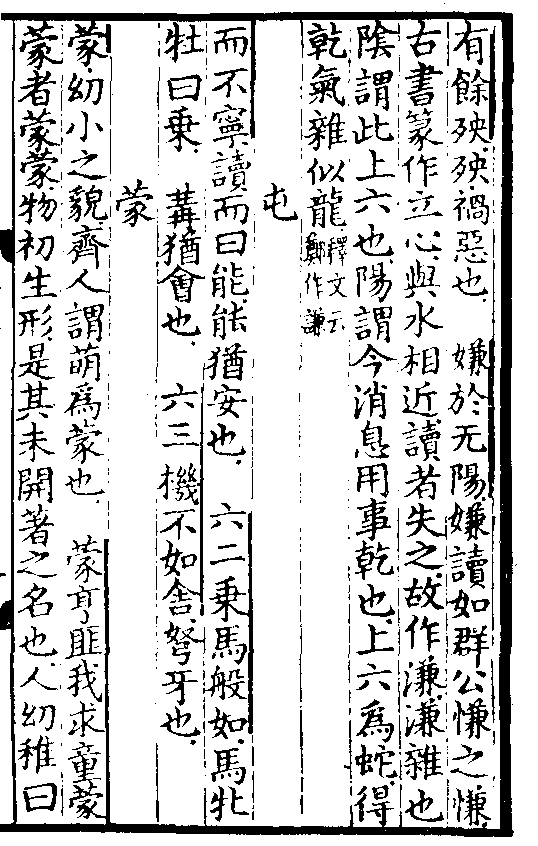 有餘殃殃禍惡也 嫌於无陽嫌讀如群公慊之慊
古書篆作立心與水相近讀者失之故作溓溓雜也
陰謂此上六也陽謂今消息用事乾也上六爲蛇得
乾氣雜似龍釋文云鄭作謙
屯
而不寧讀而曰能能猶安也 六二乘馬般如馬牝
牡曰乘 冓猶會也 六三機不如舍弩牙也
蒙
蒙幼小之貌齊人謂萌爲蒙也 蒙亨匪我求童蒙
蒙者蒙蒙物初生形是其未開著之名也人幼稚曰